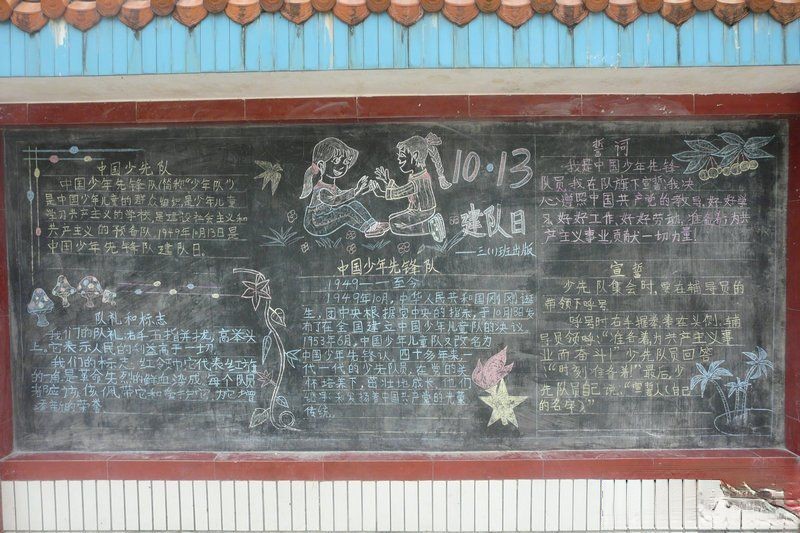 中国少先队
中国少年先锋队(简称"少年队")
是中国少年儿童的群众组织,是少年儿童
学习共产主义的学校,是建设社会主义和
共产主义的预备队,1949年10月13日是
中国少年先锋队建队日。
队礼和标志
我们的队礼:右手五指并拢,高举头
上。它表示人民的利益高于一切。
我们的标志:红领巾,它代表红旗
的一角,是革命先烈的鲜血染成,每个队员
都应该佩带它和爱护它,为它增
添新的荣誉。
10·13
建队日
——三(1)班出版
中国少年先锋队
1949——至今
1949年10月,中华人民共和国刚刚诞
生,团中央根据党中央的指示,于10月13日发
布了在全国建立中国少年儿童队的决议。
1953年6月,中国少年儿童队又改名为
中国少年先锋队,四十多年来,一
代一代的少先队员,在党的关
怀培养下,茁壮地成长,他们
中国共产党的光荣
传统。
誓词
我是中国少年先锋
队员,我在队旗下宣誓:我决
心遵照中国共产党的教导,好好学
习,好好工作,好好劳动,准备着:为共
产主义事业贡献一切力量!
宣誓
少先队集会时,要在辅导员的
带领下呼号
呼号时右手握拳举在头侧,辅
导员领呼:"准备着,为共产主义事
业而奋斗!"少先队员回答
"时刻准备着!"最后少
先队员自己说:"宣誓人(自己
的名字)"